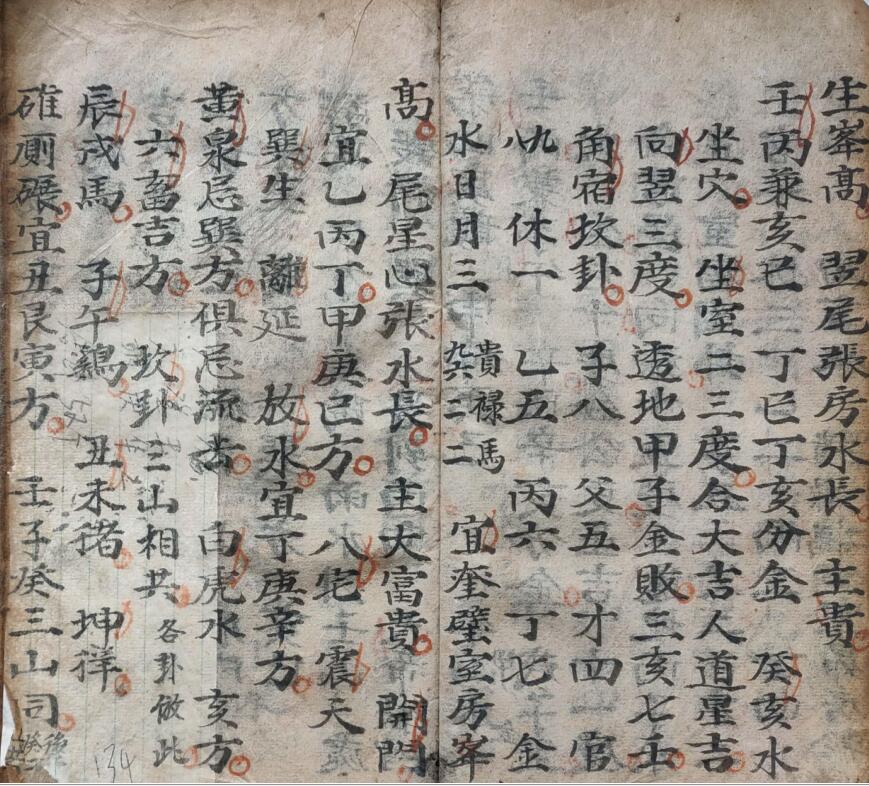 生峯髙 翌尾張房水長 主貴
壬丙兼亥巳 丁巳丁亥分金 癸亥水
坐穴 坐室二三度合大吉人道星吉
向翌三度 透地甲子金敗三亥七壬
角宿坎卦 子八 父五 才四 官
九八 休一 乙五 丙六 丁七 金
水日月三 貴九六 禄二 馬二 宜奎壁室房峯
髙 尾星心張水長 主大富貴 開門
宜乙丙丁甲庚巳方 八宅 震天
巽生 離延 放水宜丁庚辛方
黄泉忌巽方俱忌流去 白虎水 亥方
六畜吉方 坎卦三山相共 各卦倣此
辰戌馬 子午鷄 丑未猪 坤牂
碓厠碾宜丑艮寅方 壬子癸三山同
134